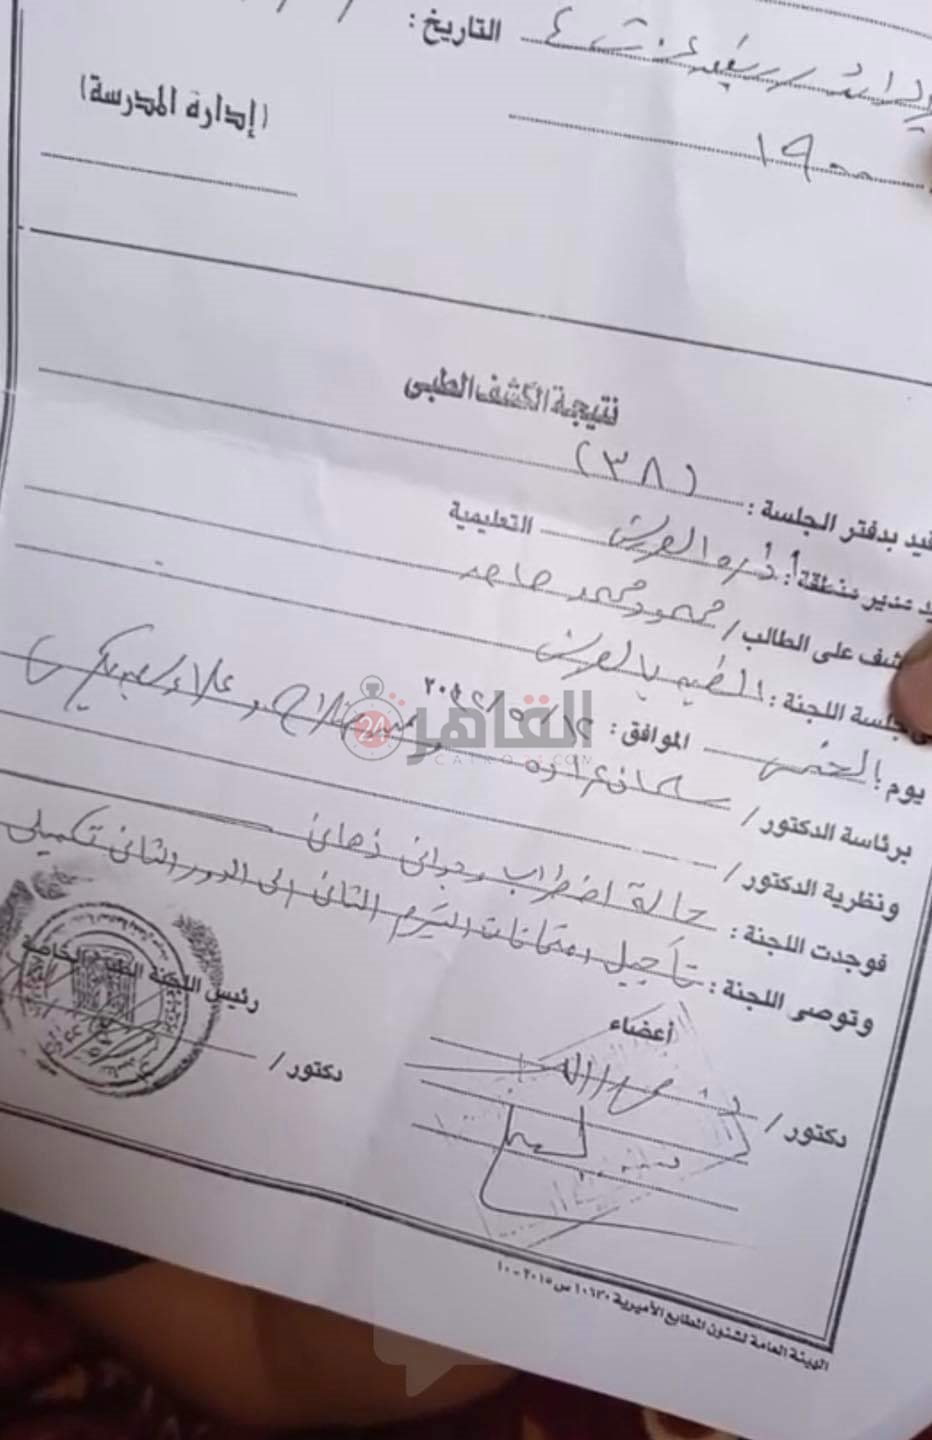 التاريخ :
١٩
(إدارة المدرسة)
نتيجة الكشف الطبى
قيد بدفتر الجلسة : (٣٨)
مدير منطقة : أداره العريش التعليمية
على الطالب / محمود محمد حامد
جلسة اللجنة : الطبيه بالعريش
يوم : الخميس الموافق : ١٢ / ٥ / ٢٠٢٢
برئاسة الدكتور / سليمان عراده و علاء
ونظرية الدكتور /
فوجدت اللجنة : حالة اضطراب وجدانى ذهانى
وتوصى اللجنة : تأجيل امتحانات التيرم الثانى الى الدور الثانى تكميلى
أعضاء
رئيس اللجنة الطبية الخاصة
دكتور /
دكتور /
القاهرة 24
CAIRO24.COM
الهيئة العامة لشئون المطابع الأميرية ١٠٦٣٠ س ٢٠١٥ - ١٠